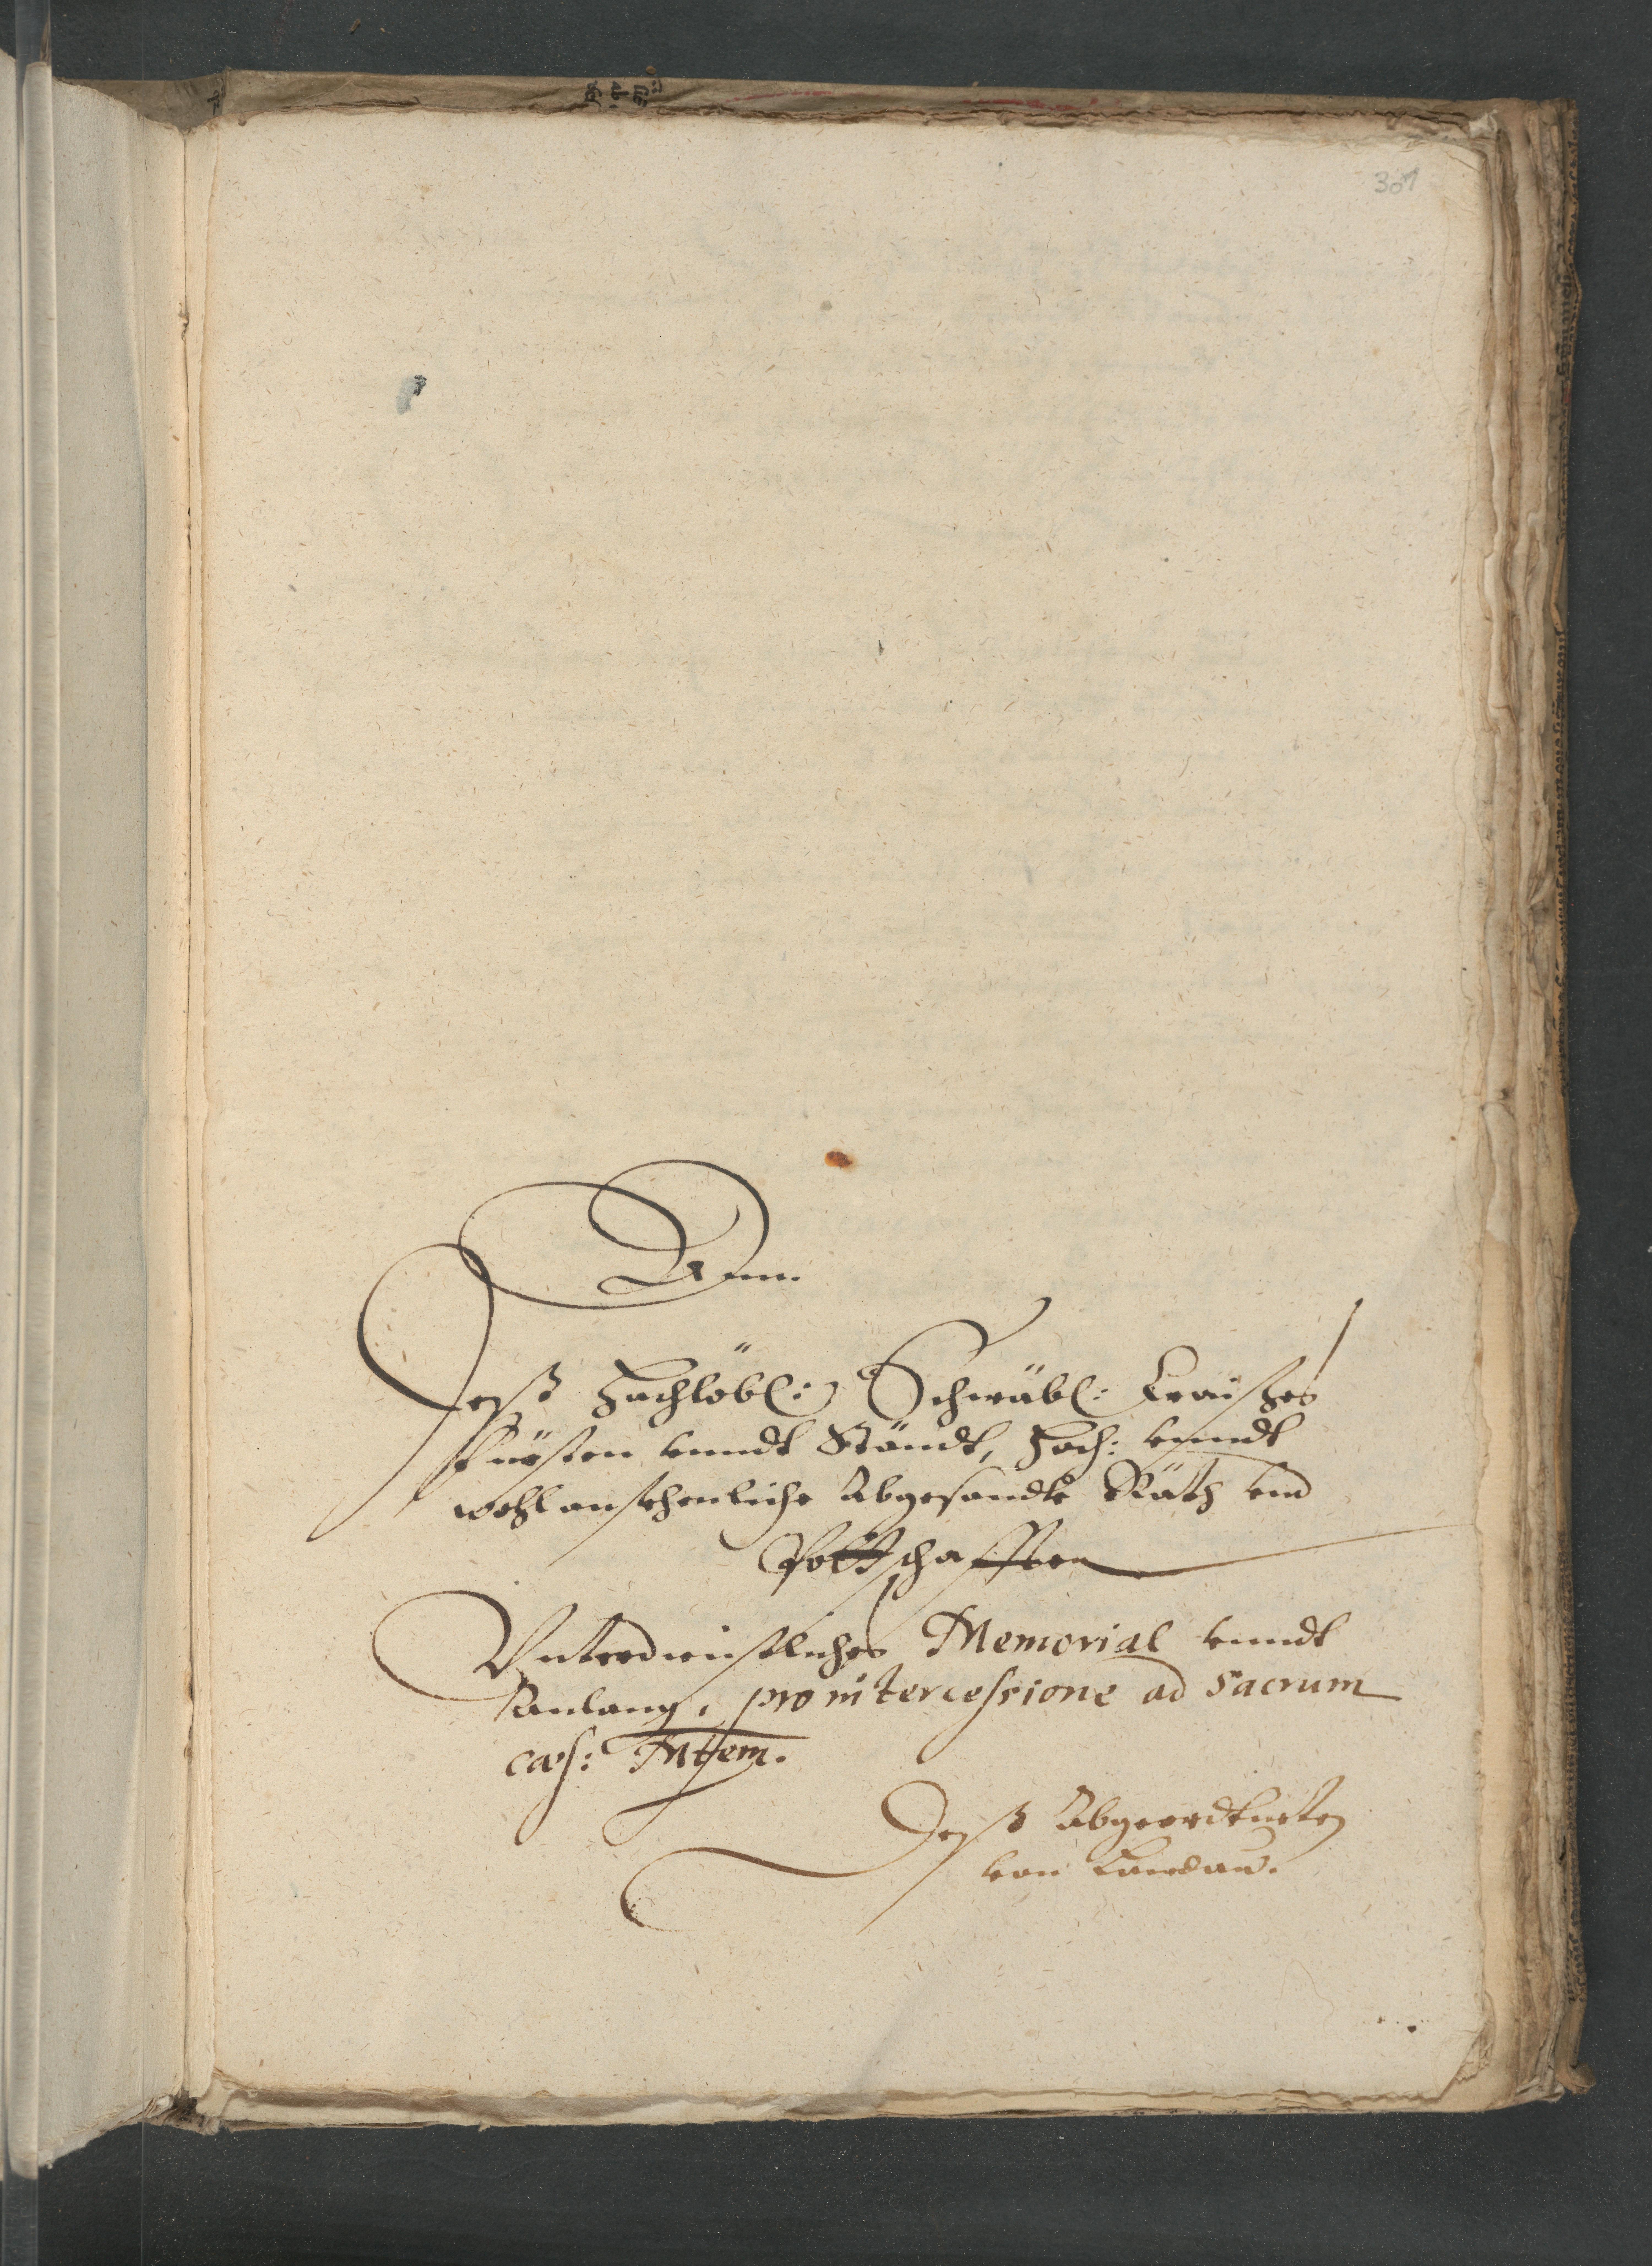 307
Ann.
Deß Hochlöbl: Schwäbl: Craißes
Fürsten unndt Ständt, Hoch: unndt
wohlansehenliche Abgesandte Räth und
Pottschafften
Unterdienstliches Memorial unndt
Anlang, pro intercessione ad sacrum
cæs: Mtem.
Deß Abgeordtneten
von Landaw.